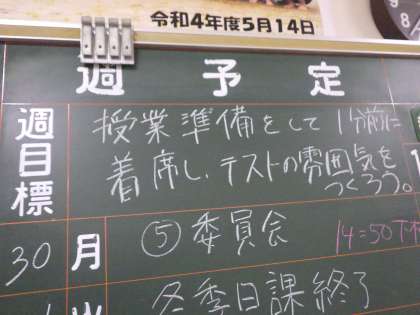 令和4年度5月14日
週予定
週目標
授業準備をして1分前に
着席し、テストの雰囲気を
つくろう。
30 月 ⑤委員会 14:50下校
冬季日課終了